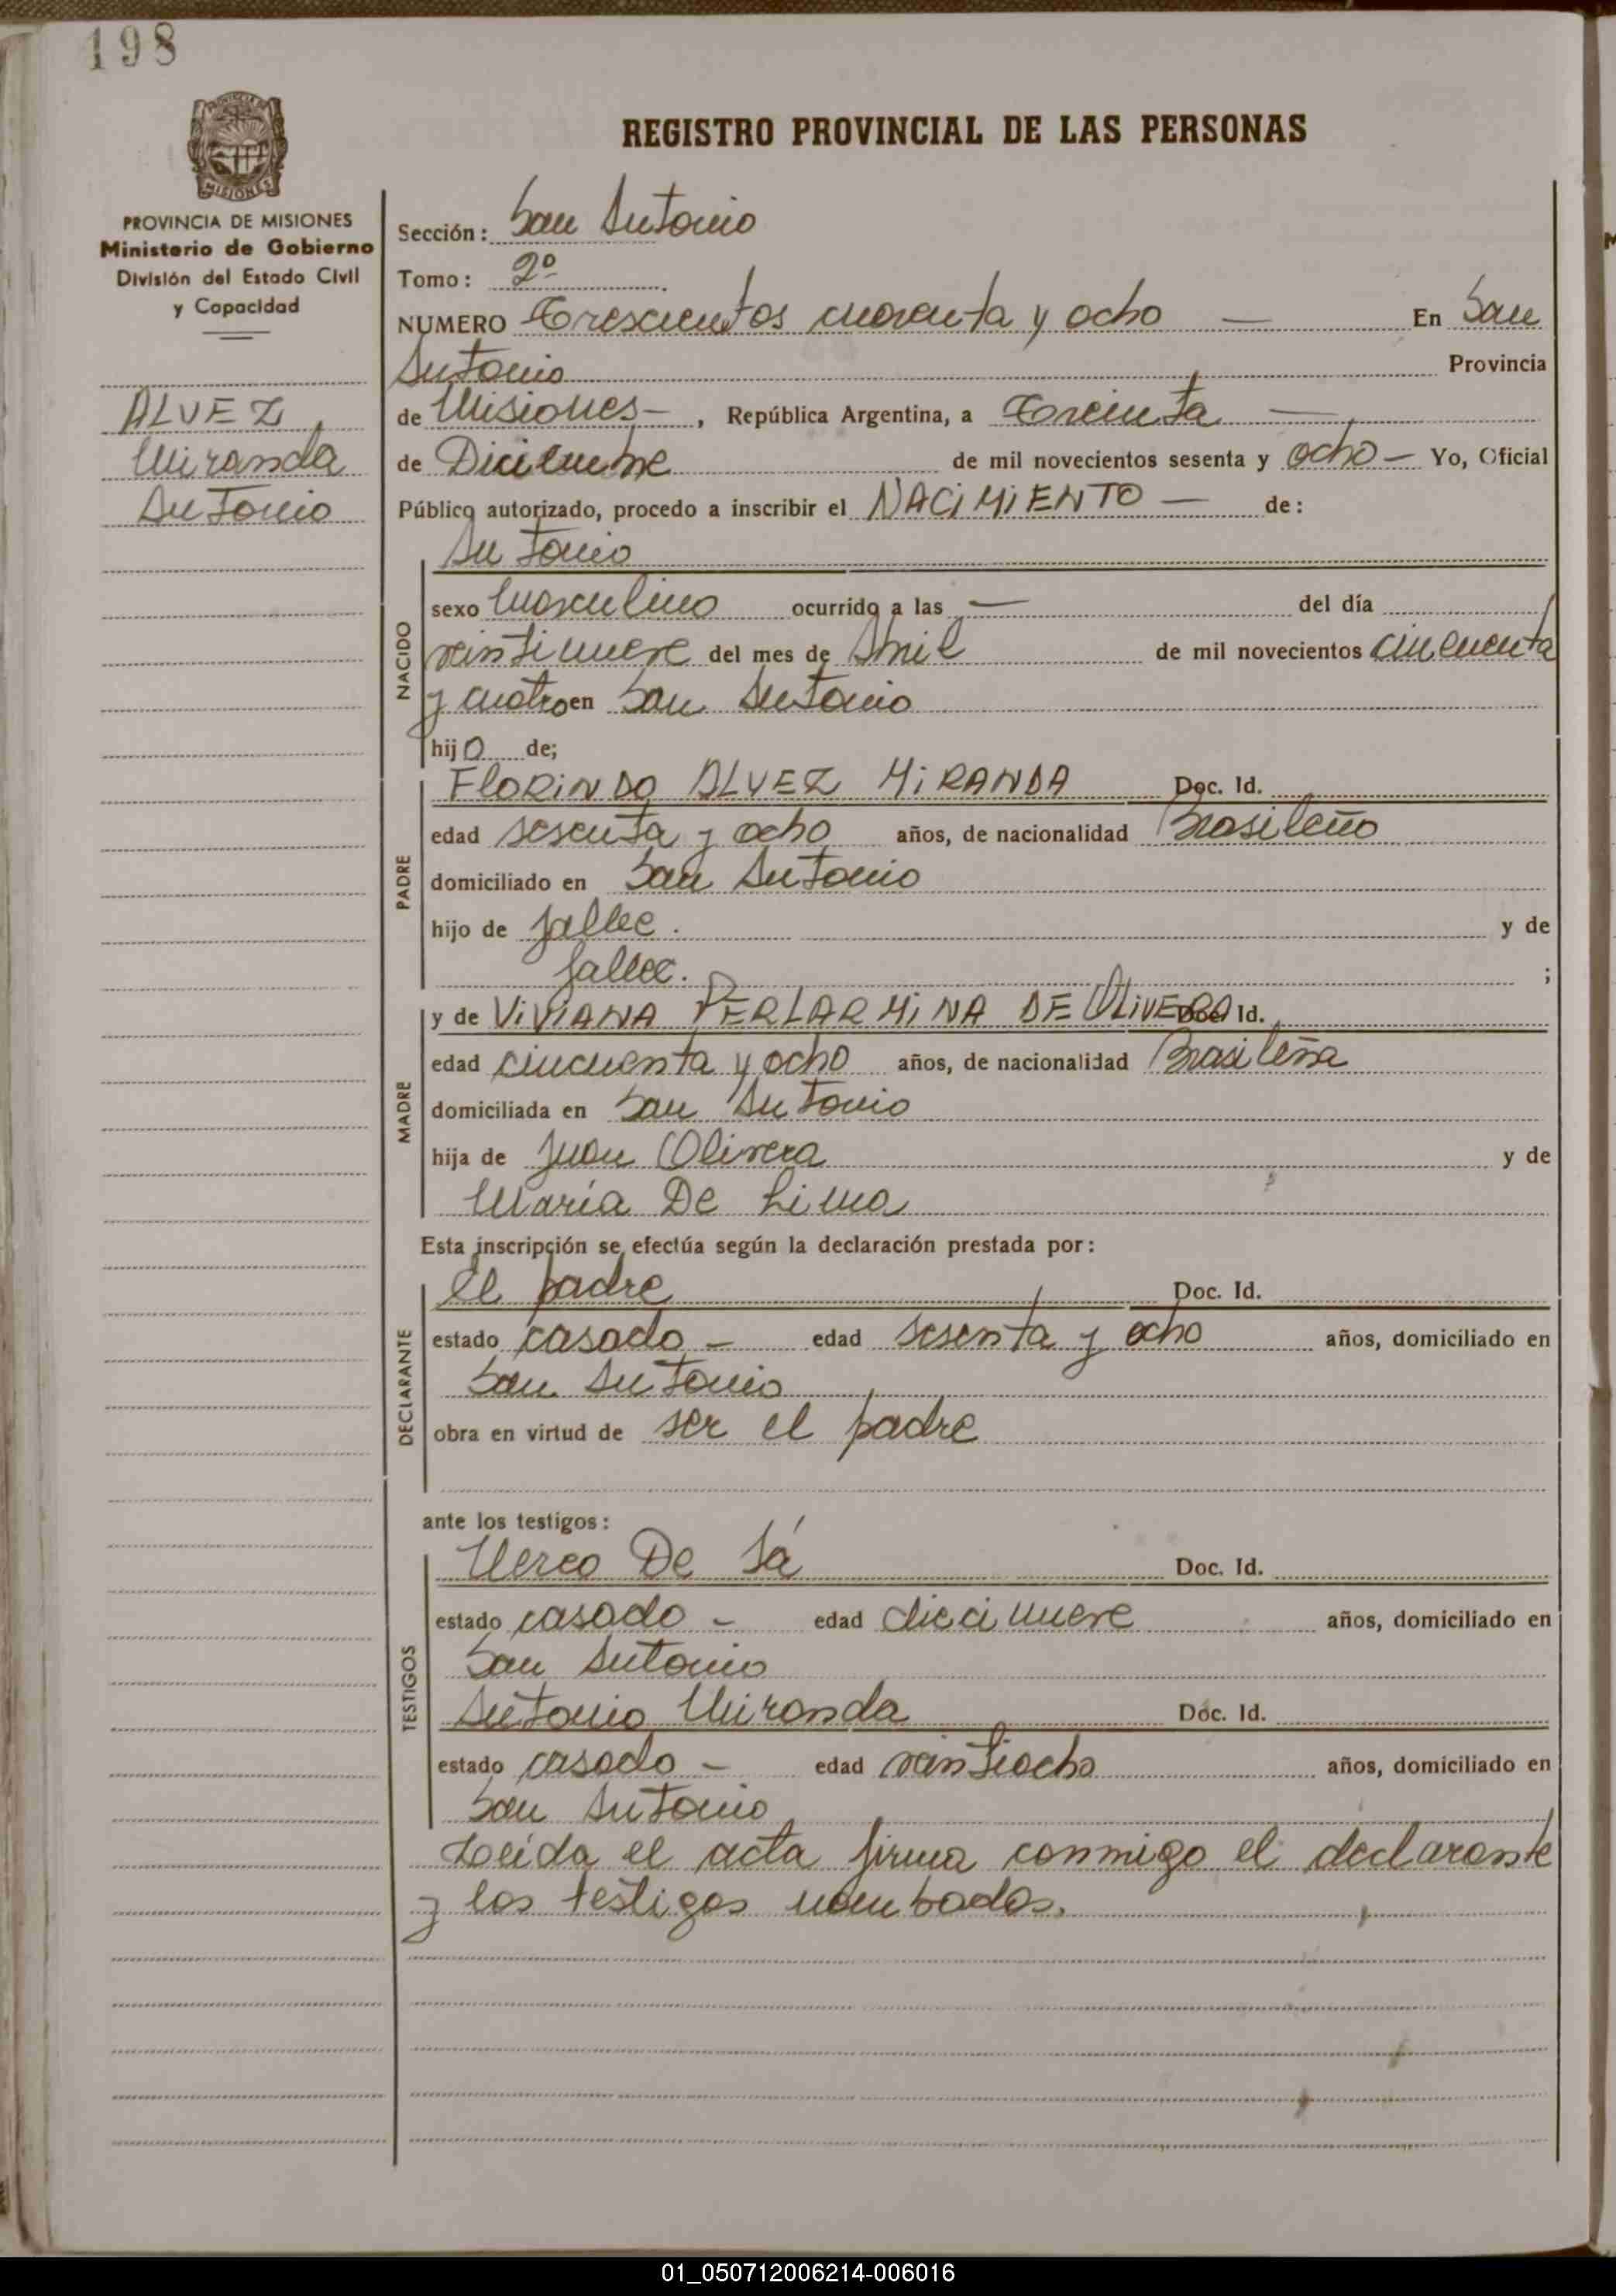 198
PROVINCIA DE MISIONES
MISIONES
REGISTRO PROVINCIAL DE LAS PERSONAS
PROVINCIA DE MISIONES
Ministerio de Gobierno
División del Estado Civil
y Capacidad
ALVEZ
Miranda
Antonio
Sección: San Antonio
Tomo: 2º
NUMERO Trescientos cuarenta y ocho — En San
Antonio Provincia
de Misiones —, República Argentina, a Treinta —
de Diciembre de mil novecientos sesenta y ocho — Yo, Oficial
Público autorizado, procedo a inscribir el NACIMIENTO — de:
Antonio
NACIDO
sexo masculino ocurrido a las — del día
veintinueve del mes de Abril de mil novecientos cincuenta
y cuatro en San Antonio
hijo de;
PADRE
FLORINDO ALVEZ MIRANDA Doc. Id.
edad sesenta y ocho años, de nacionalidad Brasileño
domiciliado en San Antonio
hijo de fallec. y de
fallec. ;
MADRE
y de VIVIANA PERLARMINA DE OLIVERA Doc. Id.
edad cincuenta y ocho años, de nacionalidad Brasileña
domiciliada en San Antonio
hija de Juan Olivera y de
María De Lima
Esta inscripción se efectúa según la declaración prestada por:
DECLARANTE
El padre Doc. Id.
estado casado — edad sesenta y ocho años, domiciliado en
San Antonio
obra en virtud de ser el padre
ante los testigos:
TESTIGOS
De Sá Doc. Id.
estado casado — edad diecinueve años, domiciliado en
San Antonio
Antonio Miranda Doc. Id.
estado casado — edad veintiocho años, domiciliado en
San Antonio
Leída el acta firma conmigo el declarante
y los testigos nombados.
01_050712006214-006016